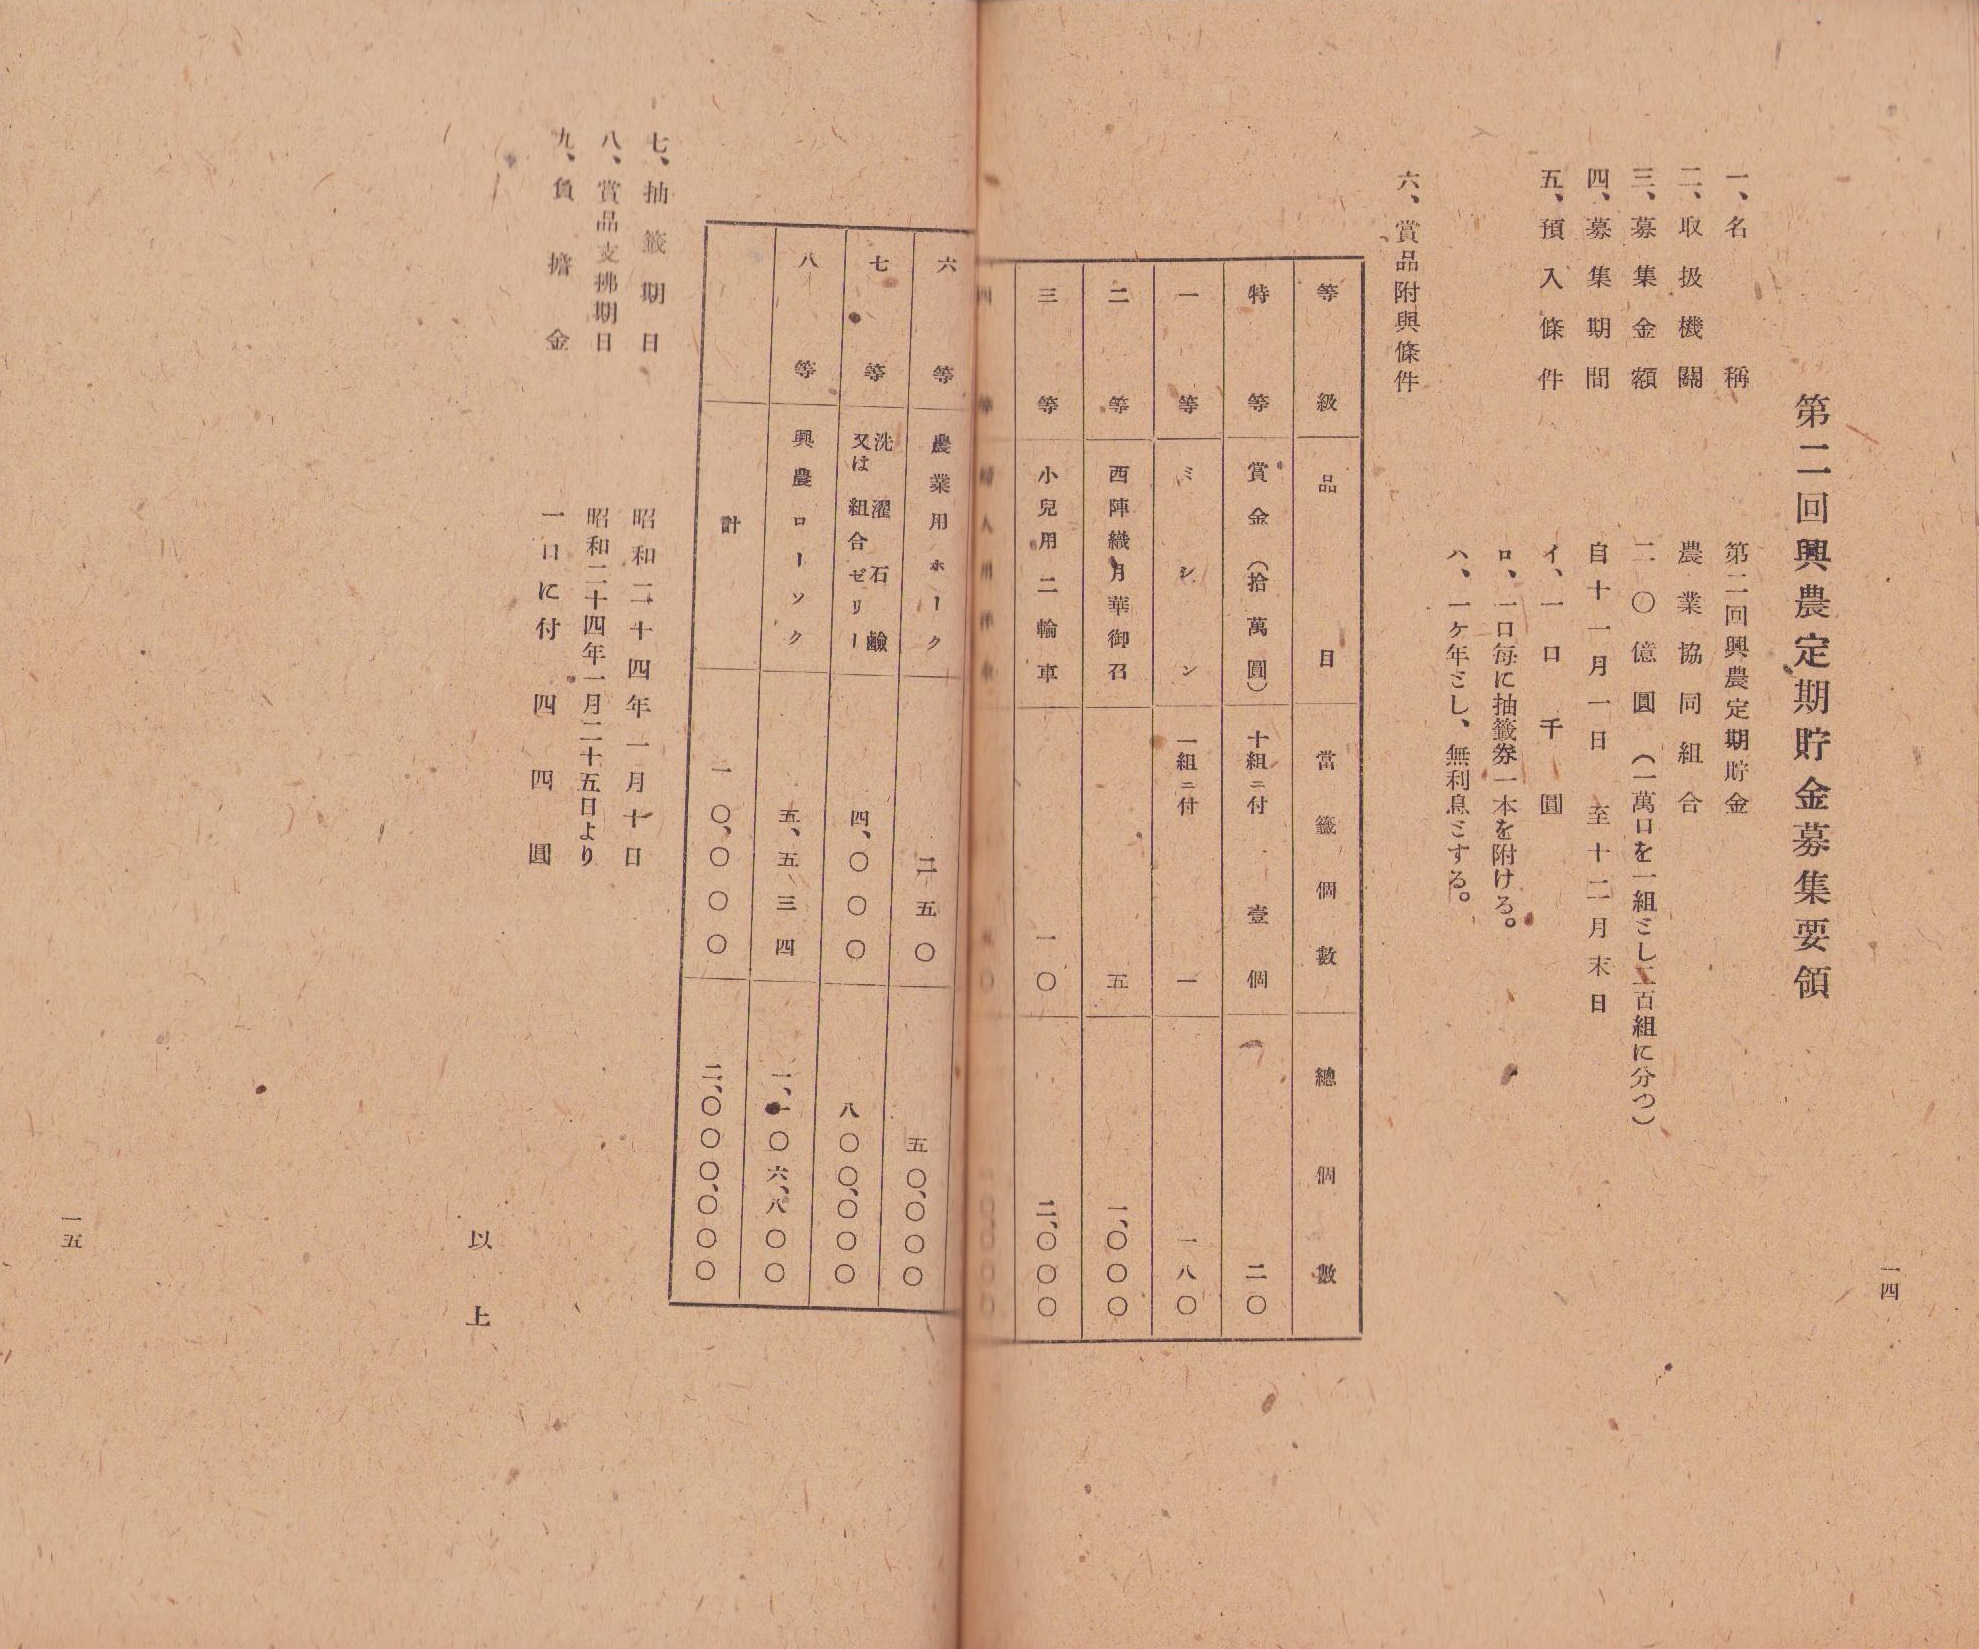 第二回興農定期貯金募集要領
一、名稱　第二回興農定期貯金
二、取扱機關　農業協同組合
三、募集金額　二〇億圓（一萬口を一組とし二百組に分つ）
四、募集期間　自十一月一日　至十二月末日
五、預入條件　イ、一口千圓
ロ、一口毎に抽籤券一本を附ける。
ハ、一ケ年とし、無利息とする。
六、賞品附與條件
等級　品目　當籤個數　總個數
特等　賞金（拾萬圓）　十組ニ付　壹個　二〇
一等　ミシン　一組ニ付　一　一八〇
二等　西陣織月華御召　五　一、〇〇〇
三等　小兒用二輪車　一〇　二、〇〇〇
四等
一四
六等　農業用ホーク　二五〇　五〇、〇〇〇
七等　洗濯石鹼又は組合ゼリー　四、〇〇〇　八〇〇、〇〇〇
八等　興農ローソク　五、五三四　一、一〇六、八〇〇
計　一〇、〇〇〇　二、〇〇〇、〇〇〇
七、抽籤期日　昭和二十四年一月十日
八、賞品支拂期日　昭和二十四年一月二十五日より
九、負擔金　一口に付　四四圓
以上
一五